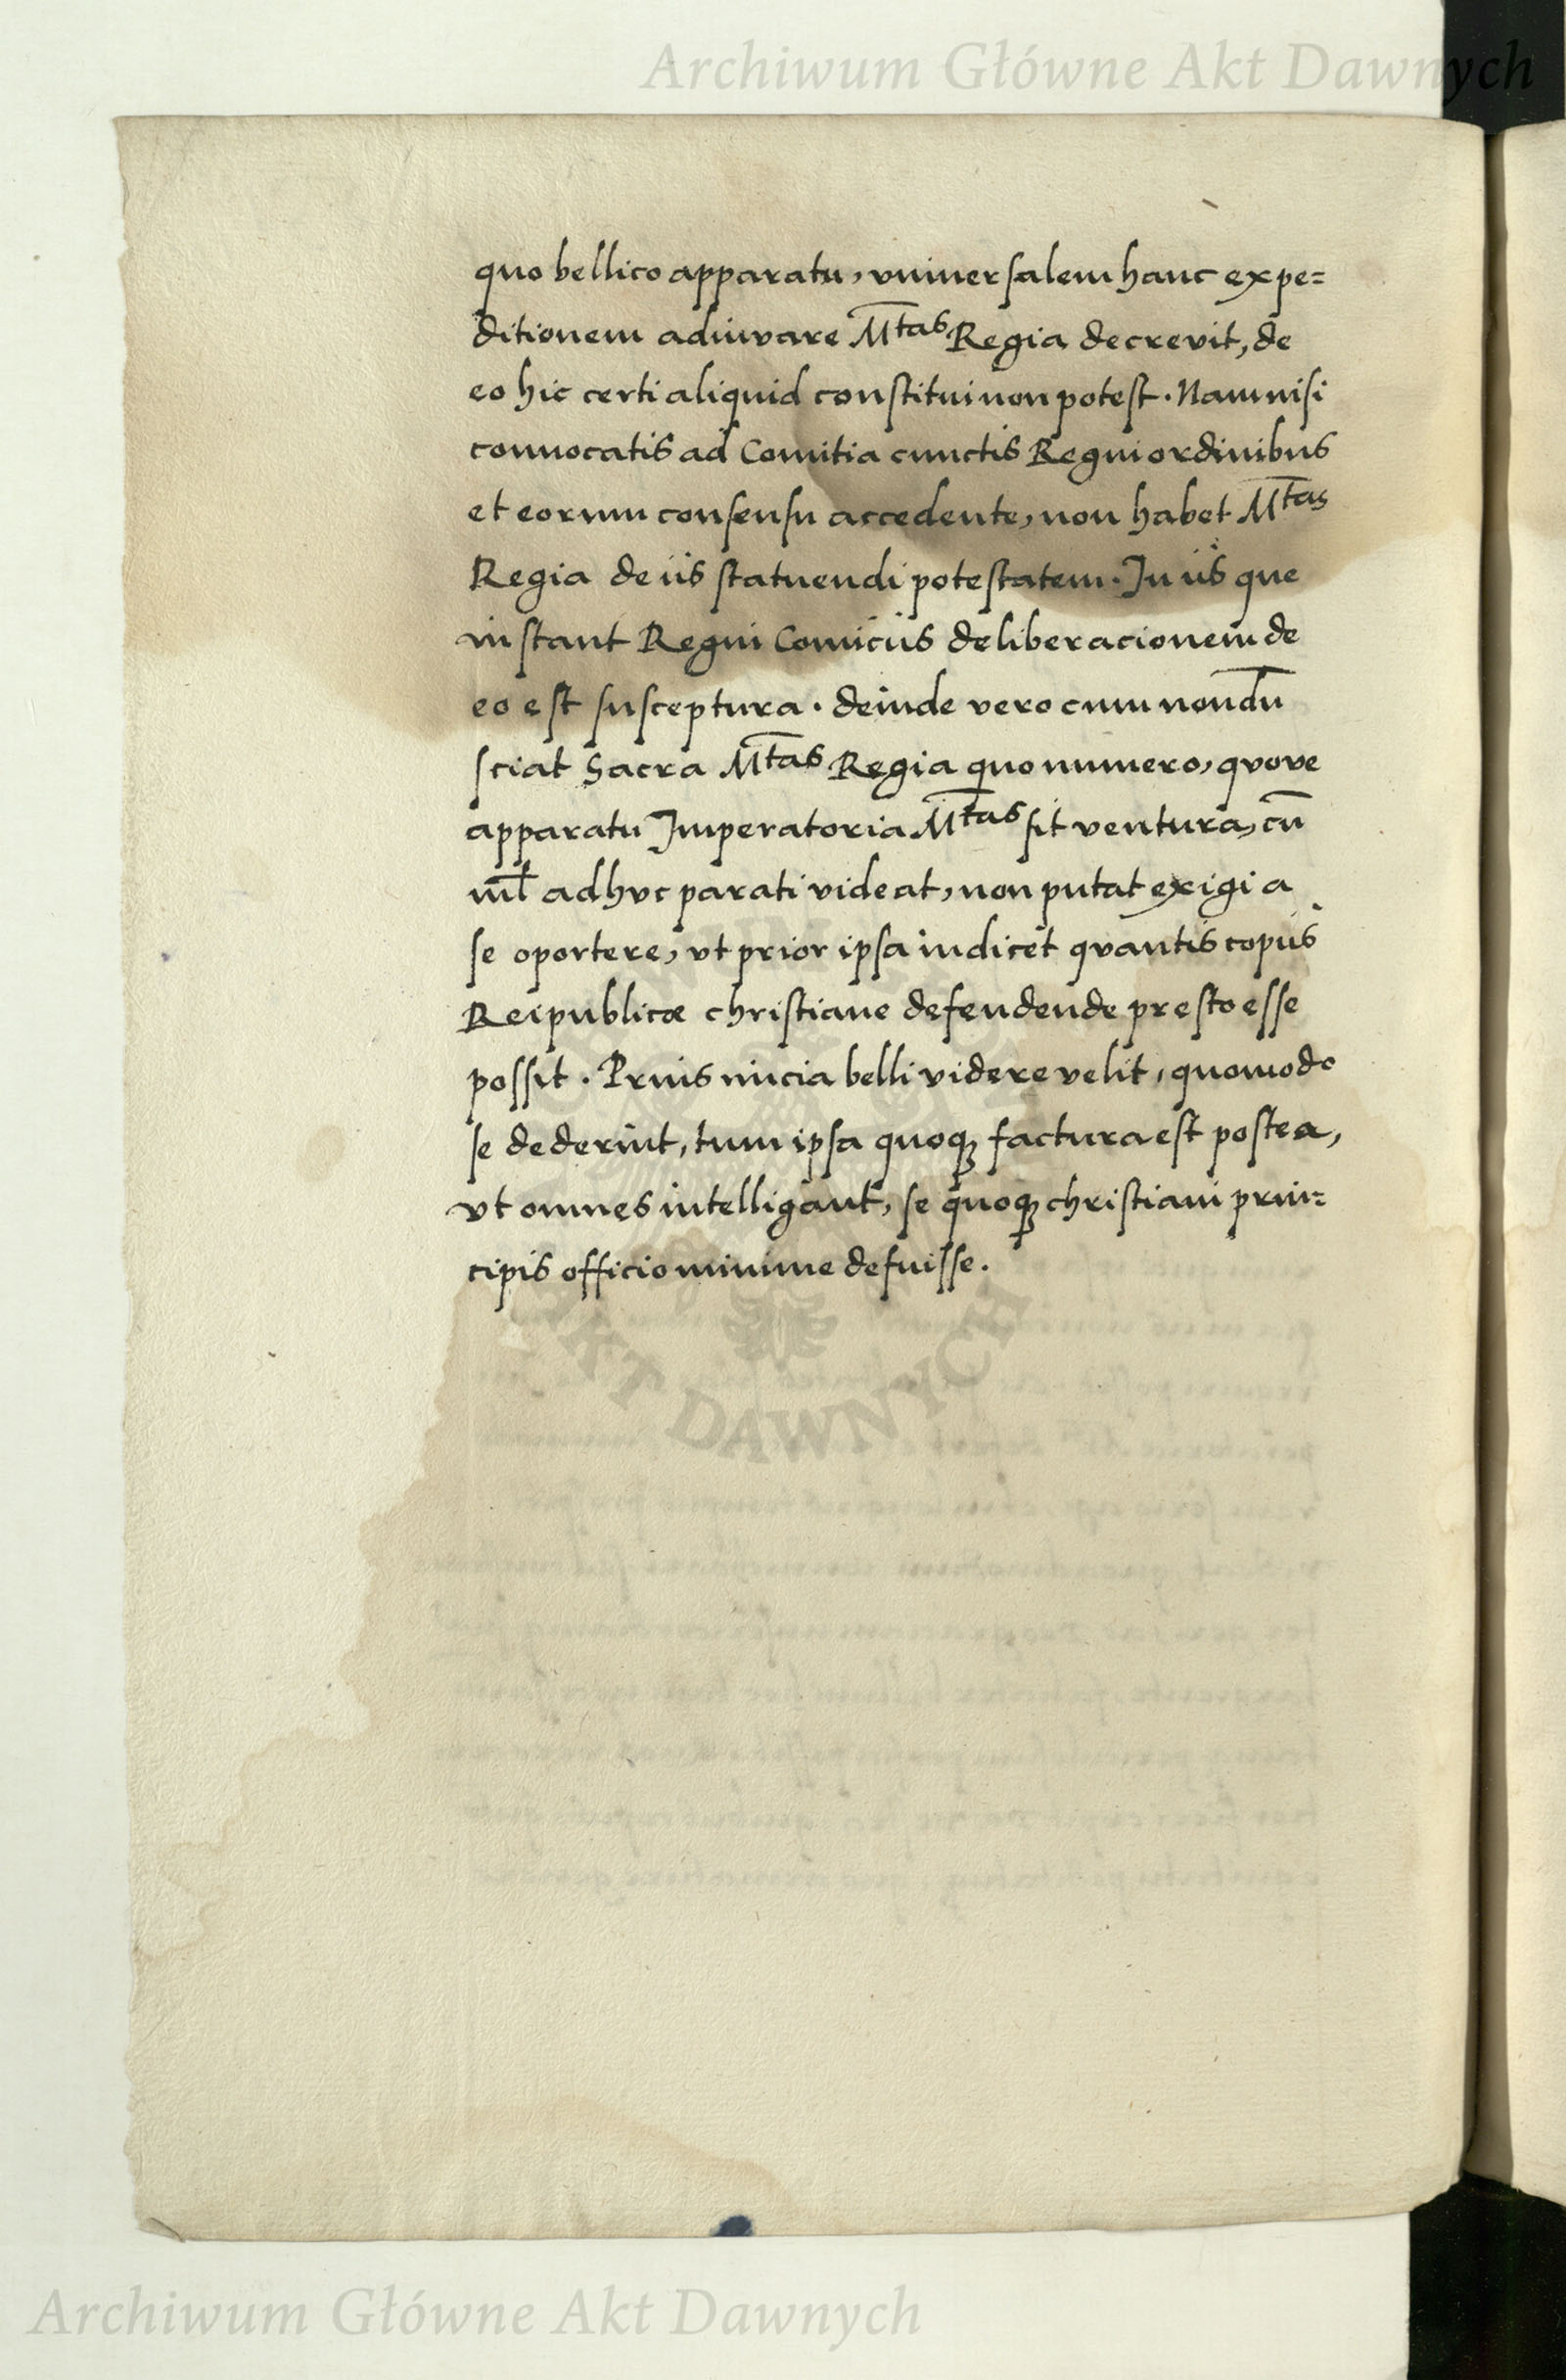 Archiwum Główne Akt Dawnych
quo bellico apparatu, vniuersalem hanc expe=
ditionem adiuvare M^tas Regia decrevit, de
eo hic certi aliquid constitui non potest. Nam nisi
conuocatis ad Comitia cunctis Regni ordinibus
et eorum consensu accedente, non habet M^tas
Regia de iis statuendi potestatem. In iis que
instant Regni Comiciis deliberacionem de
eo est susceptura. deinde vero cum nondū
sciat Sacra M^tas Regia quo numero, qvove
apparatu Imperatoria M^tas sit ventura, cū
nil adhvc parati videat, non putat exigi a
se oportere, vt prior ipsa indicet qvantis copiis
Reipublicæ christiane defendende presto esse
possit. Prius inicia belli videre velit, quomodo
se dederint, tum ipsa quoqꝫ factura est postea,
vt omnes intelligant, se quoqꝫ christiani prin=
cipis officio minime defuisse.
AKT DAWNYCH
Archiwum Główne Akt Dawnych